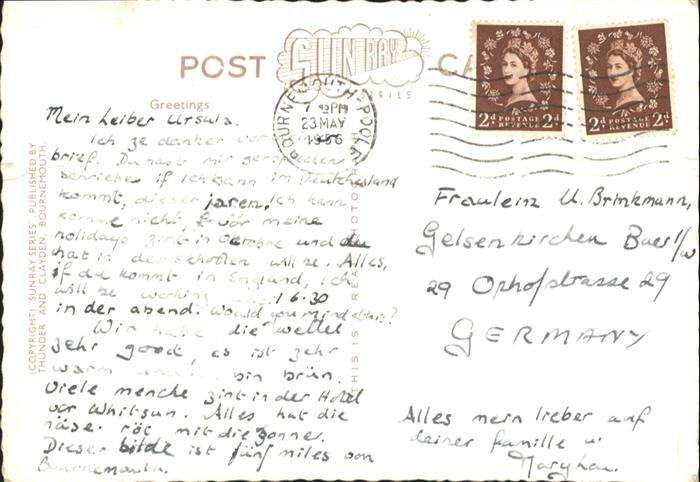 POST CARD
SUNRAY
SERIES
Greetings
BOURNEMOUTH-POOLE
7 12PM
23 MAY
1956
2d POSTAGE REVENUE 2d
2d POSTAGE REVENUE 2d
(COPYRIGHT) SUNRAY SERIES" PUBLISHED BY
THUNDER AND CLAYDEN, BOURNEMOUTH
THIS IS A REAL PHOTOGRAPH
Mein Leiber Ursula.
Ich ze danker vor
brief. Du hast mir
schriebe if ich kann im Deutchesland
kommt, dieser jaren. Ich kan
komme nicht, fuör meine
holidays zint in
hat in der schoolen will ze. Alles,
if du kommt in England, ich
will ze working 6.30
in der abend. Would you mind this?
Wir habe die wettel
zehr good, es ist zehr
warm bin brün.
Viele menche zint in der Hotel
vor Whitsun. Alles hat die
näse röt mit die zonner.
Dieser bilde ist fünf miles von
Bournemouth.
Fraulein U. Brinkmann,
Gelsenkirchen Buer i/w
29 Ophofstrasse 29
GERMANY
Alles mein lieber auf
deiner familie u